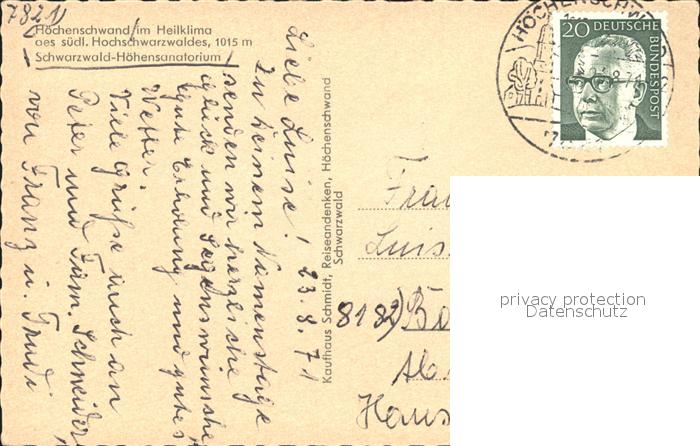 7821)
Höchenschwand/im Heilklima
des südl. Hochschwarzwaldes, 1015 m
Schwarzwald-Höhensanatorium
Liebe Luise! 23.8.71
Zu Deinem Namenstage
senden wir herzliche
Glück und Segenswünsche
Gute Erholung und gutes
Wetter.
Viele Grüße auch an
Peter und Fam. Schneider
von Franz u. Trudi
Kaufhaus Schmidt, Reiseandenken, Höchenschwand
Schwarzwald
HÖCHENSCHW
20 DEUTSCHE
BUNDESPOST
Frau
Luis
8182) Ba
Haus
privacy protection
Datenschutz